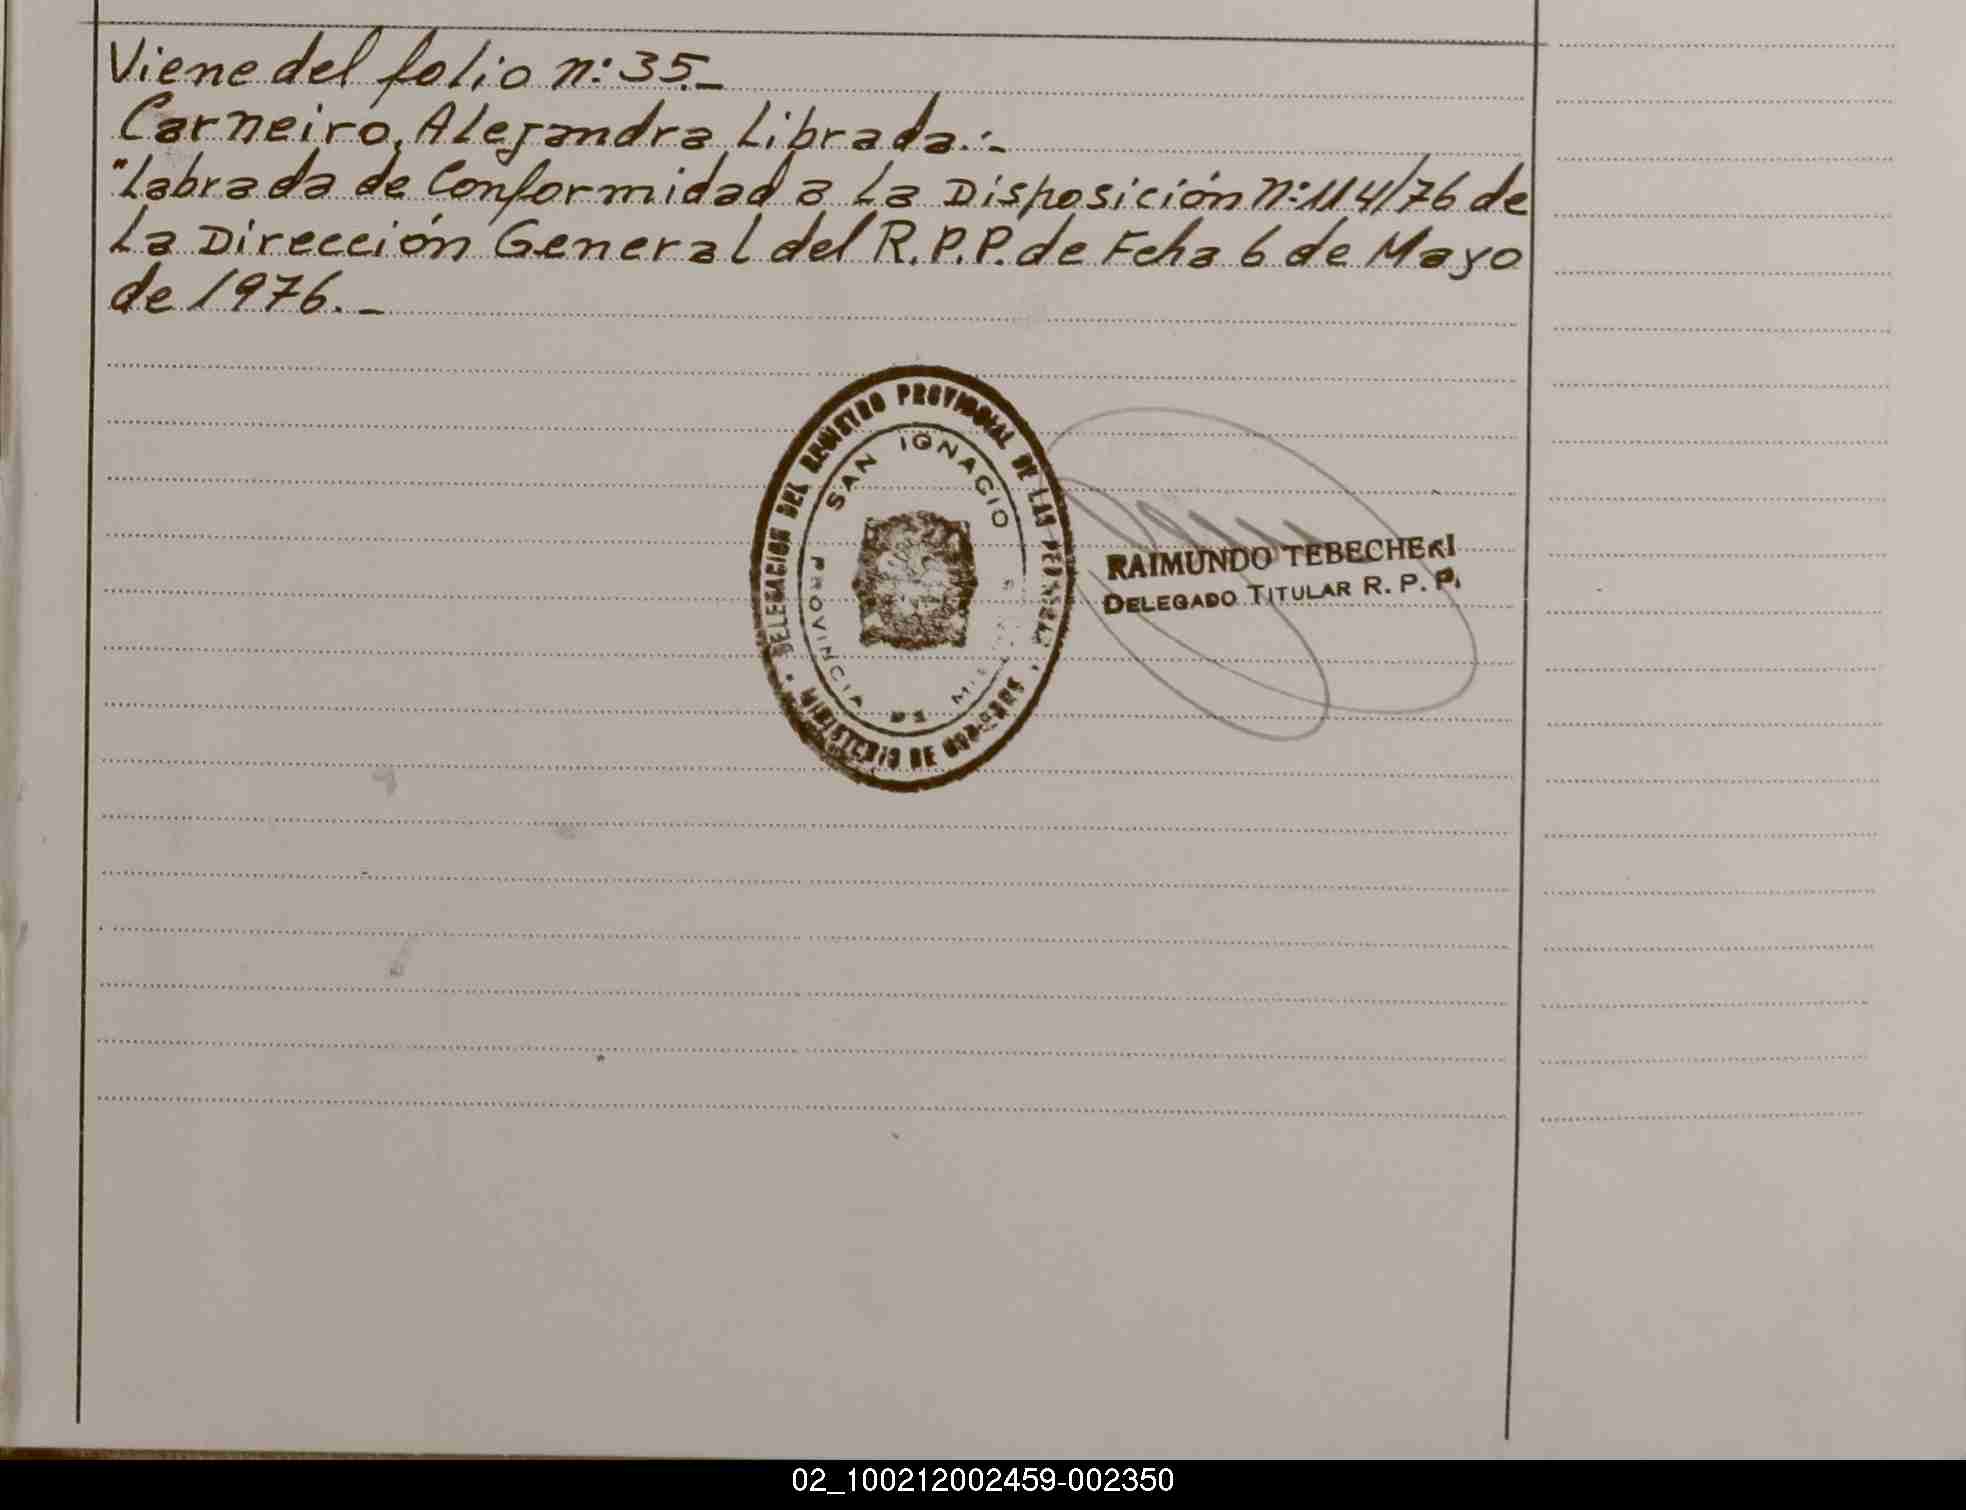 Viene del folio n: 35._
Carneiro, Alejandra Librada.-
"Labrada de Conformidad a La Disposición n: 114/76 de
La Dirección General del R.P.P. de Fcha 6 de Mayo
de 1976._
DELEGACION DEL REGISTRO PROVINCIAL DE LAS PERSONAS
SAN IGNACIO
PROVINCIA DE
MINISTERIO DE GOBIERNO
RAIMUNDO TEBECHERI
DELEGADO TITULAR R. P. P.
02_100212002459-002350